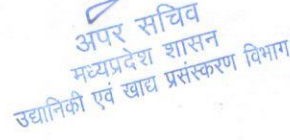 अपर सचिव
मध्यप्रदेश शासन
उद्यानिकी एवं खाद्य प्रसंस्करण विभाग